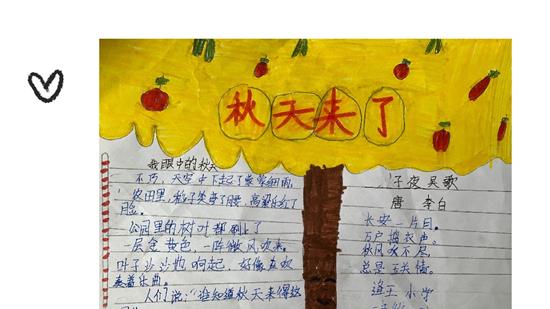 秋天来了
我眼中的秋天
不巧，天空中下起了蒙蒙细雨，
农田里，稻子笑弯了腰，高粱乐红了
脸。
公园里的树叶都刷上了
一层金黄色，一阵微风吹来，
叶子沙沙地响起，好像在欢
奏着乐曲。
人们说：“谁知道秋天来得这
子夜吴歌
唐 李白
长安一片月，
万户捣衣声。
秋风吹不尽，
总是玉关情。
小学